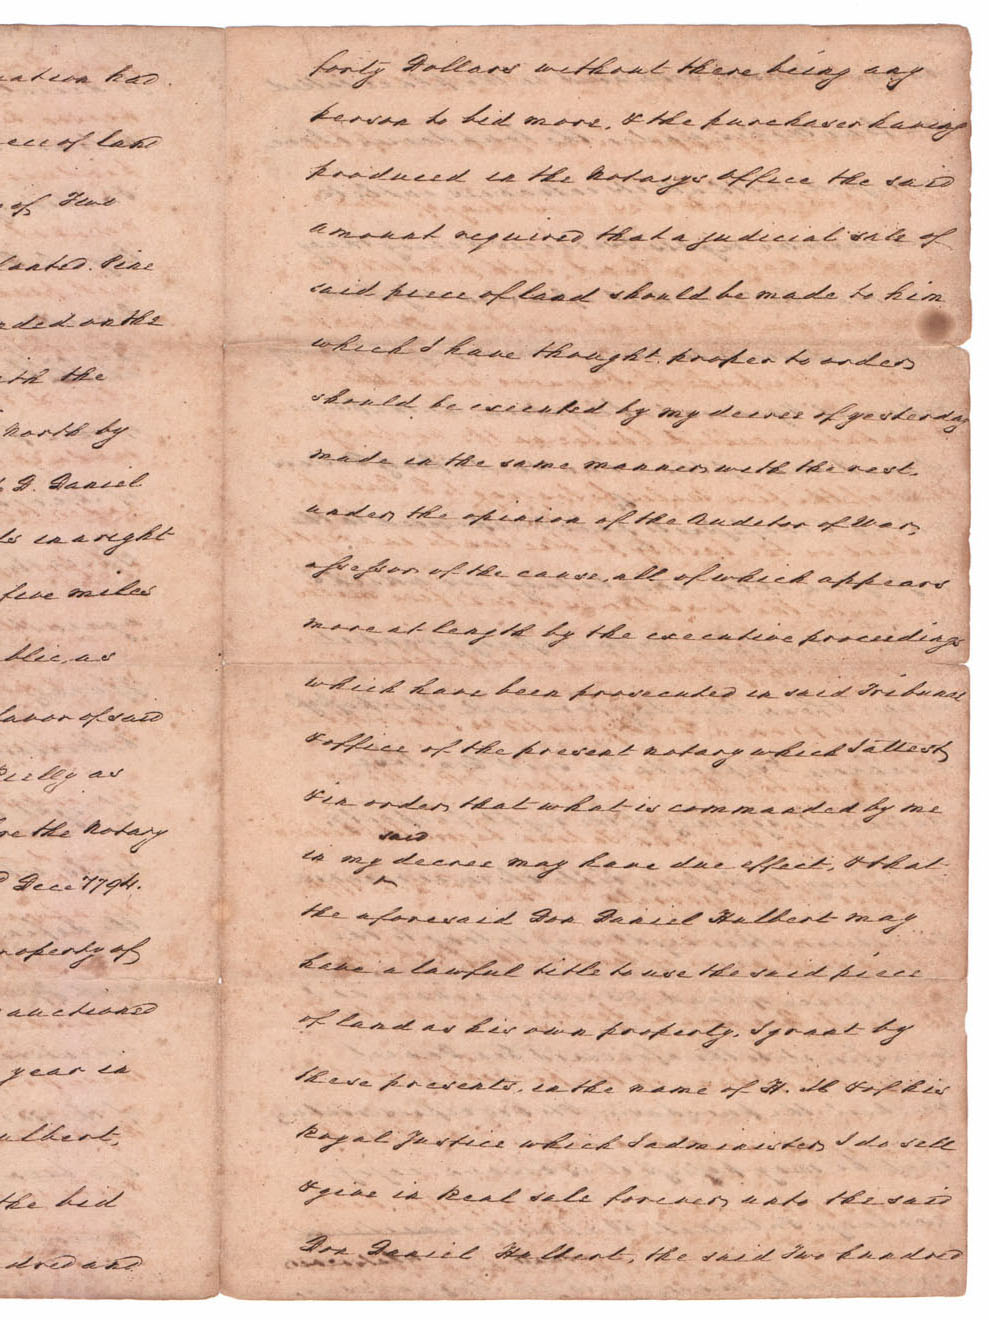 nation had
piece of land
of Two
planted Pine
nded on the
ith the
North by
D. Daniel
in a right
five miles
blic, as
favor of said
Reilly as
re the Notary
Dece 1794.
roperty of
auctioned
year in
ulbert,
the bid
dred and
forty Dollars without there being any
person to bid more, & the purchaser having
produced in the Notarys office the said
amount required that a judicial sale of
said piece of land should be made to him
which I have thought proper to order,
should be executed by my decree of yesterday
made in the same manner, with the rest,
under, the opinion of the Auditor of War,
assessor of the cause, all of which appears
more at length by the executive proceedings
which have been prosecuted in said Tribunal
& office of the present notary which I attest,
& in order, that what is commanded by me
said
in my decree may have due effect, & that
the aforesaid Don Daniel Hulbert may
have a lawful title to use the said piece
of land as his own property, I grant by
these presents, in the name of H. M & of his
Royal Justice which I administer, I do sell
& give in Real sale forever, unto the said
Don Daniel Hulbert, the said Two hundred